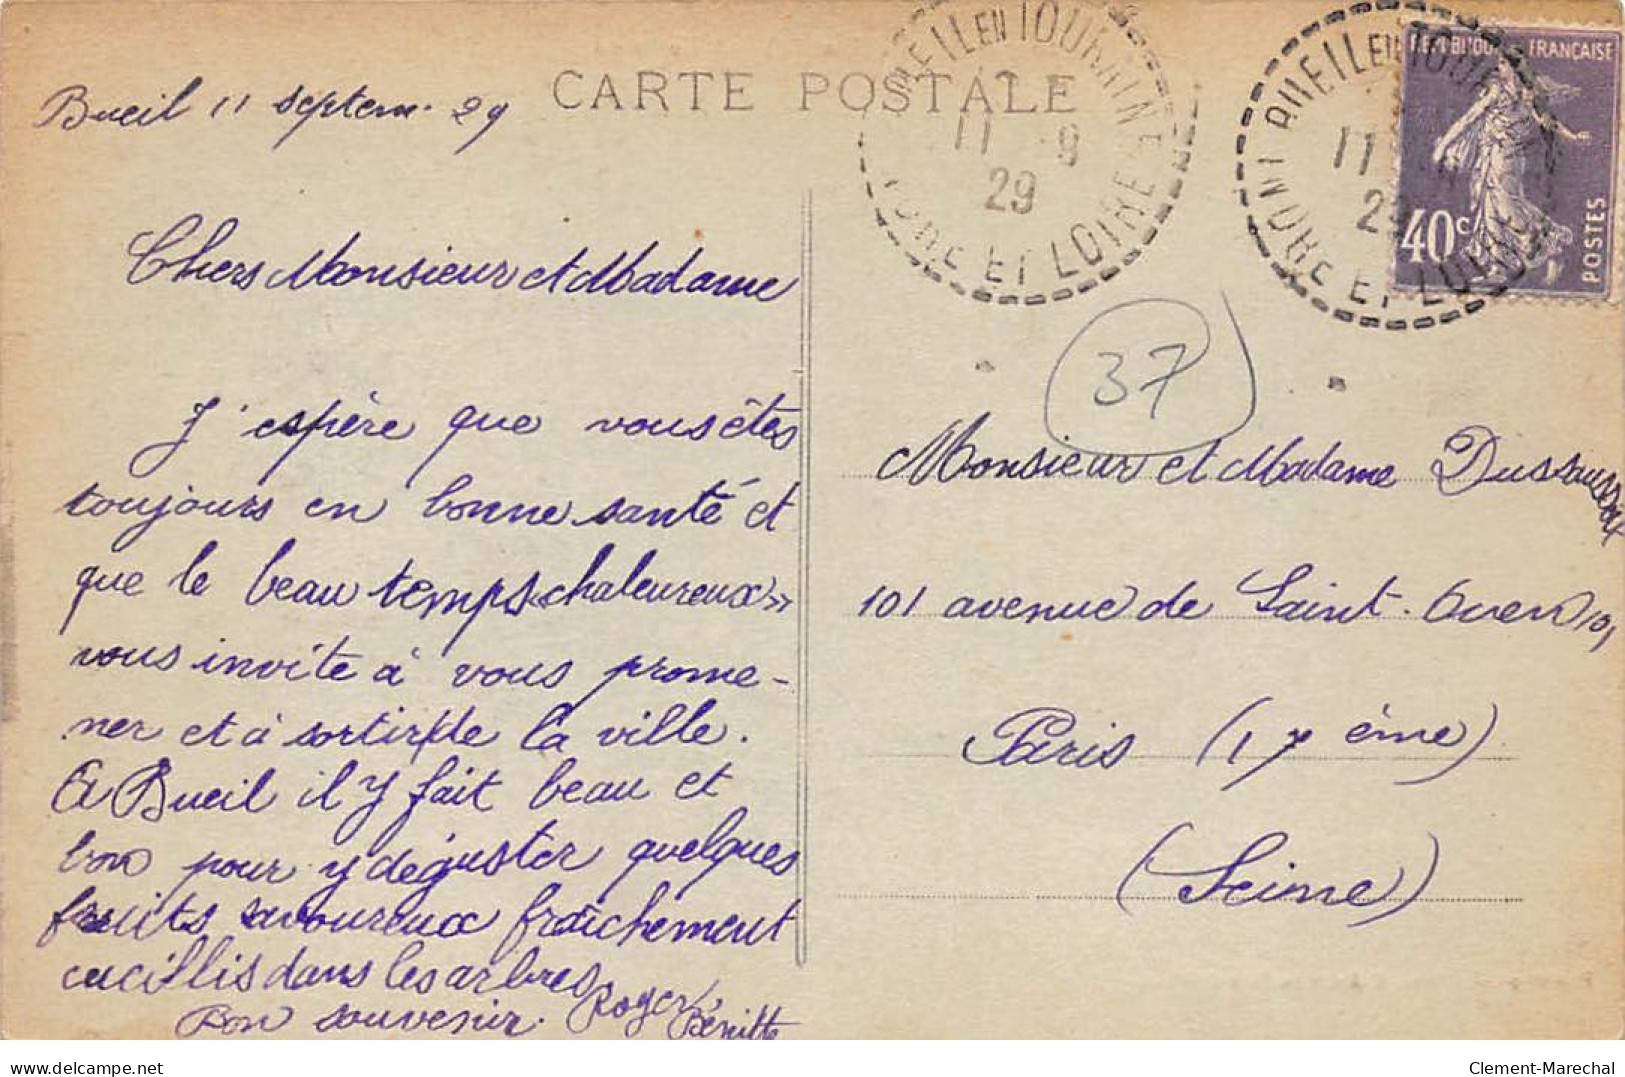 CARTE POSTALE
Bueil 11 septem. 29
Chers Monsieur et Madame
J'espère que vous êtes
toujours en bonne santé et
que le beau temps «chaleureux»
vous invite à vous prome-
ner et à sortir de la ville.
A Bueil il y fait beau et
bon pour y déguster quelques
fruits savoureux fraîchement
cueillis dans les arbres
Bon souvenir. Roger
Bénitte
BUEIL EN TOURAINE
11 9
29
INDRE ET LOIRE
BUEIL EN TOURAINE
11
29
INDRE ET LOIRE
REPUBLIQUE FRANÇAISE
40c
POSTES
37
Monsieur et Madame
101 avenue de Saint-Ouen 101
Paris (17 ème)
(Seine)
delcampe.net
Clement-Marechal